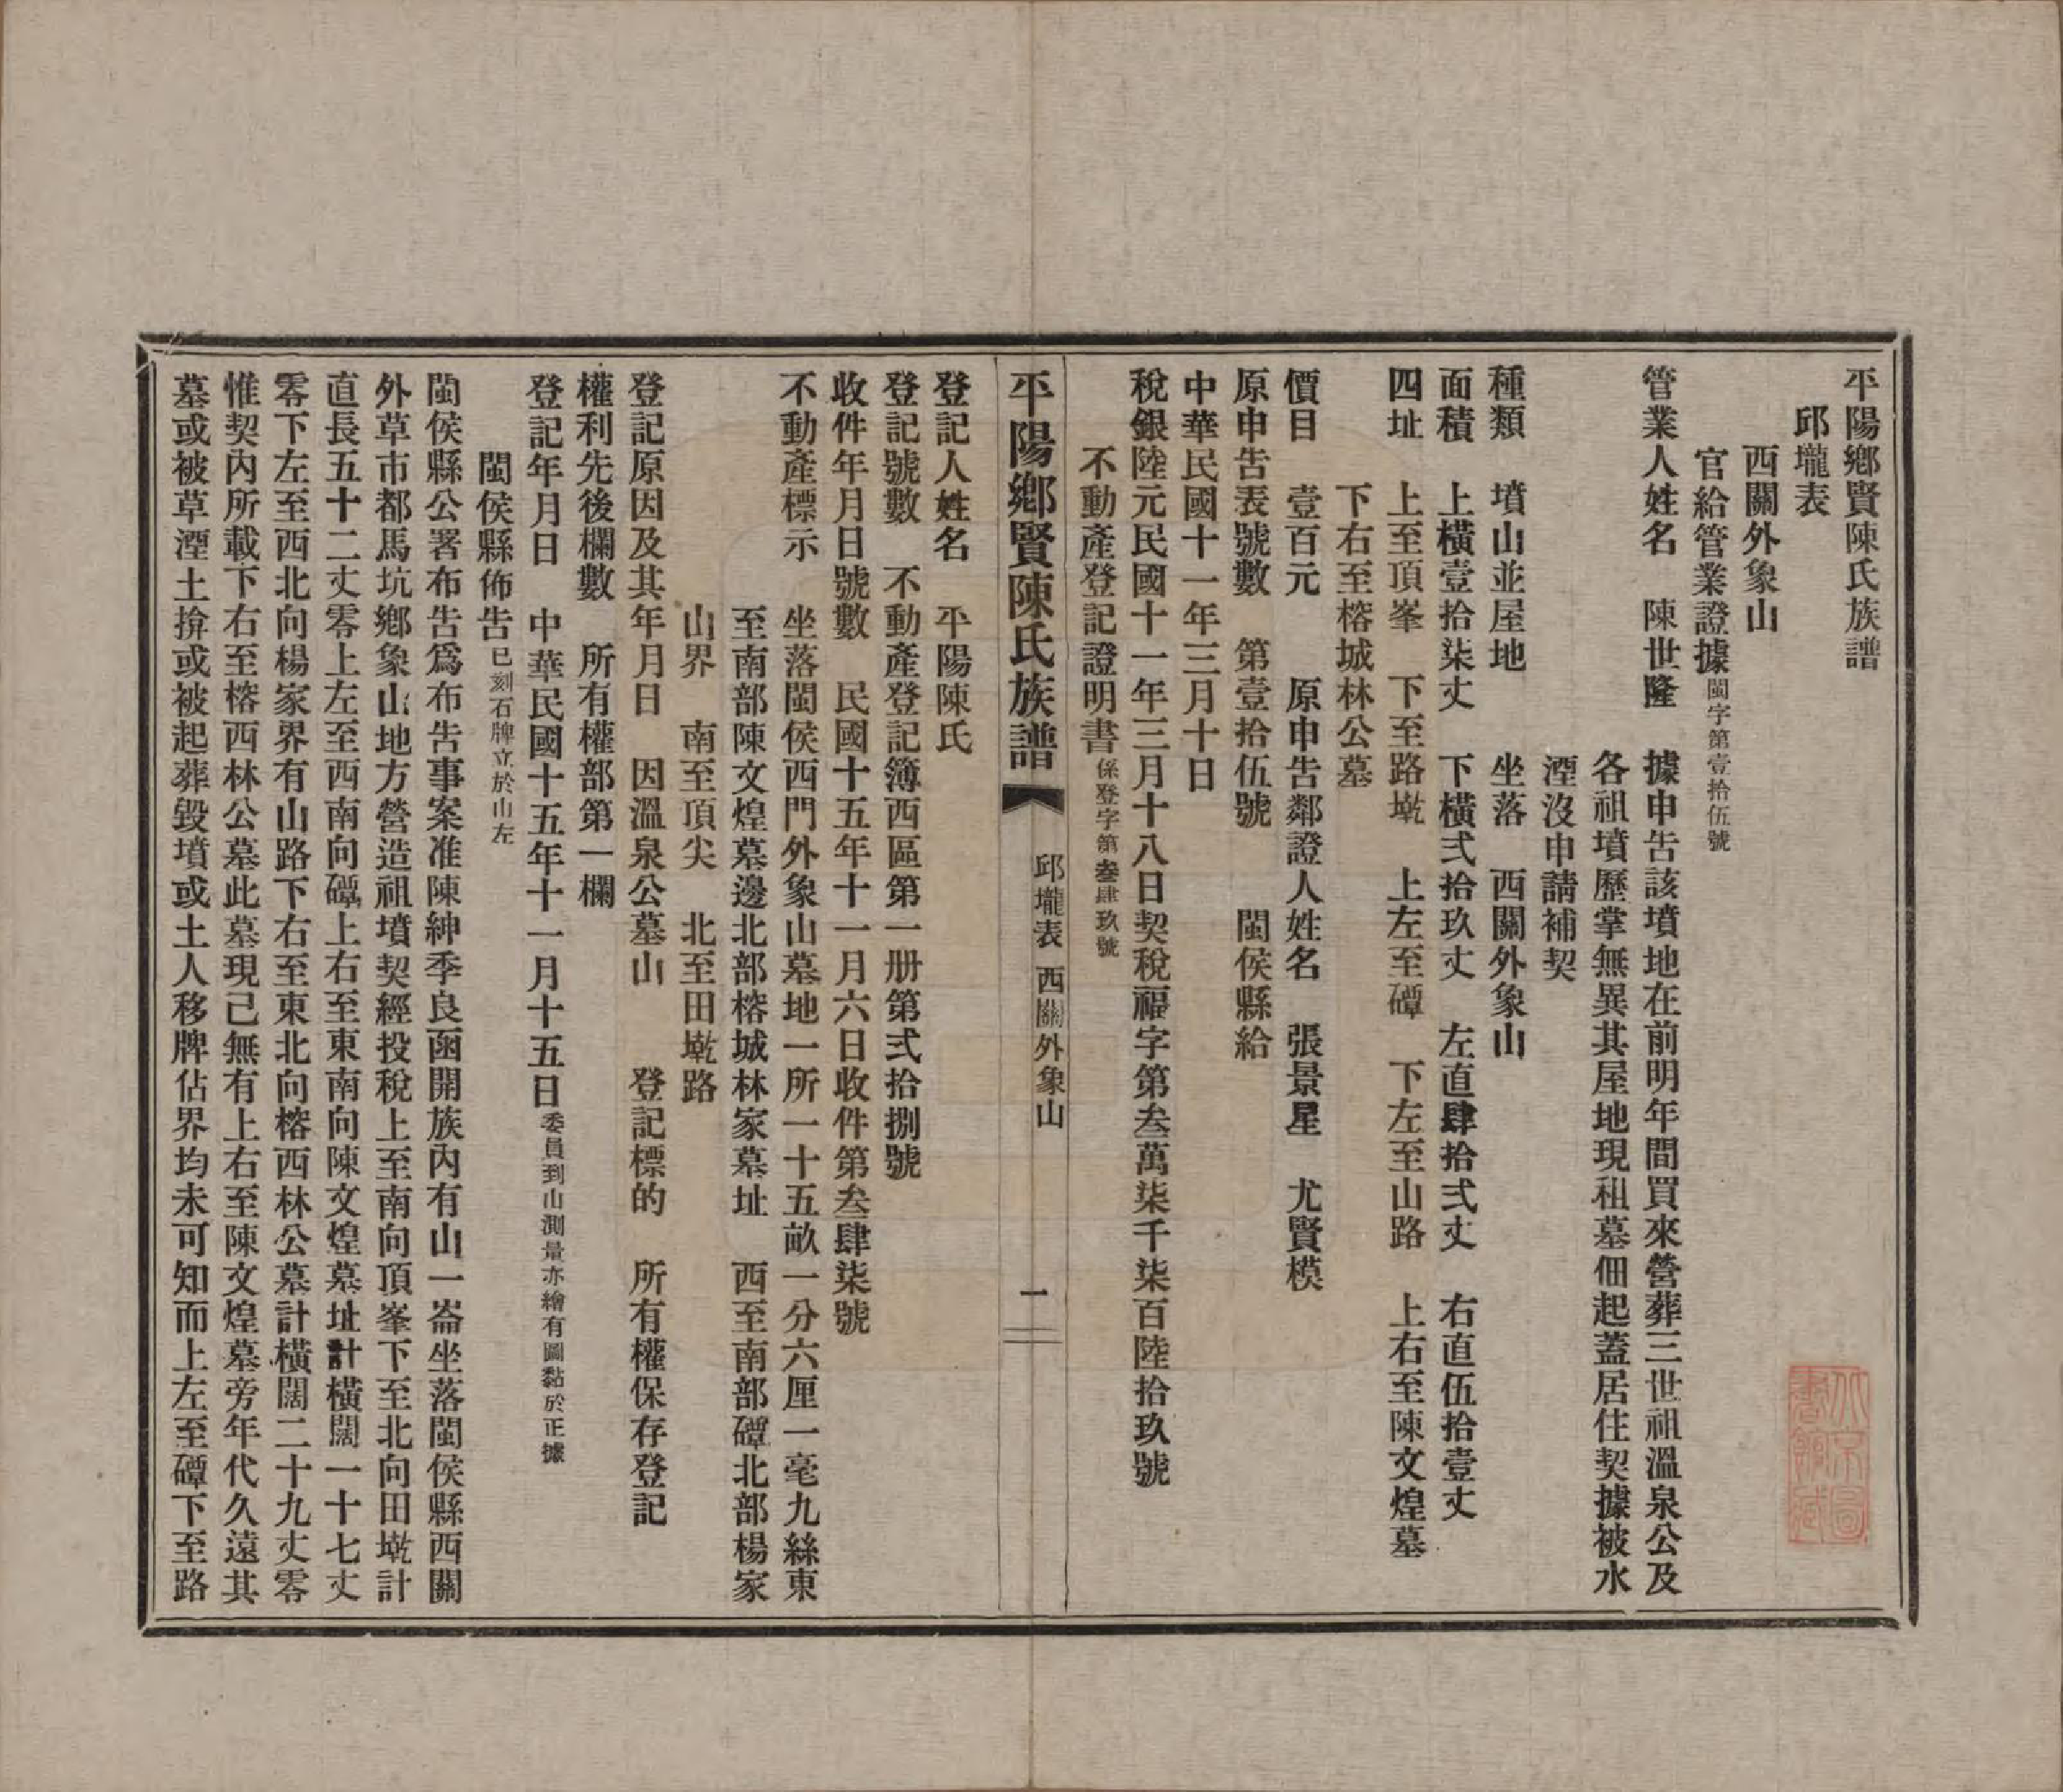 平陽鄉賢陳氏族譜
邱壠表
西關外象山
官給管業證據閩字第壹拾伍號
管業人姓名　陳世隆　據申告該墳地在前明年間買來營葬三世祖溫泉公及
各祖墳歷掌無異其屋地現租墓佃起蓋居住契據被水
湮沒申請補契
種類　墳山並屋地　坐落　西關外象山
面積　上橫壹拾柒丈　下橫弍拾玖丈　左直肆拾弍丈　右直伍拾壹丈
四址　上至頂峯　下至路墘　上左至磹　下左至山路　上右至陳文煌墓
下右至榕城林公墓
價目　壹百元　原申告鄰證人姓名　張景星　尤賢模
原申告表號數　第壹拾伍號　閩侯縣給
中華民國十一年三月十日
稅銀陸元民國十一年三月十八日契稅福字第叁萬柒千柒百陸拾玖號
不動產登記證明書係登字第叁肆玖號
平陽鄉賢陳氏族譜　邱壠表　西關外象山　一
登記人姓名　平陽陳氏
登記號數　不動產登記簿西區第一册第弍拾捌號
收件年月日號數　民國十五年十一月六日收件第叁肆柒號
不動產標示　坐落閩侯西門外象山墓地一所一十五畝一分六厘一毫九絲東
至南部陳文煌墓邊北部榕城林家墓址　西至南部磹北部楊家
山界　南至頂尖　北至田墘路
登記原因及其年月日　因溫泉公墓山　登記標的　所有權保存登記
權利先後欄數　所有權部第一欄
登記年月日　中華民國十五年十一月十五日委員到山測量亦繪有圖黏於正據
閩侯縣佈告已刻石牌立於山左
閩侯縣公署布告爲布告事案准陳紳季良函開族內有山一崙坐落閩侯縣西關
外草市都馬坑鄉象山地方營造祖墳契經投稅上至南向頂峯下至北向田墘計
直長五十二丈零上左至西南向磹上右至東南向陳文煌墓址計橫闊一十七丈
零下左至西北向楊家界有山路下右至東北向榕西林公墓計橫闊二十九丈零
惟契內所載下右至榕西林公墓此墓現已無有上右至陳文煌墓旁年代久遠其
墓或被草湮土揜或被起葬毀墳或土人移牌佔界均未可知而上左至磹下至路